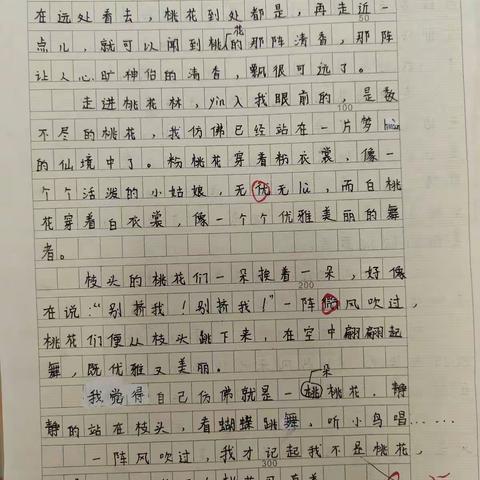 在远处看去，桃花到处都是，再走近一
50
点儿，就可以闻到桃花的那阵清香，那阵
让人心旷神怡的清香，飘很可远了。
走进桃花林，yìn入我眼前的，是数
100
不尽的桃花，我仿佛已经站在一片梦huàn
的仙境中了。粉桃花穿着粉衣裳，像一
个个活泼的小姑娘，无优无lǜ，而白桃
花穿着白衣裳，像一个个优雅美丽的舞
者。
枝头的桃花们一朵挨着一朵，好像
200
在说：“别挤我！别挤我！”一阵微风吹过，
桃花们便从枝头跳下来，在空中翩翩起
舞，既优雅又美丽。
我觉得自己仿佛就是一朵桃花，静
静的站在枝头，看蝴蝶跳舞，听小鸟唱……
一阵风吹过，我才记起我不是桃花，
300